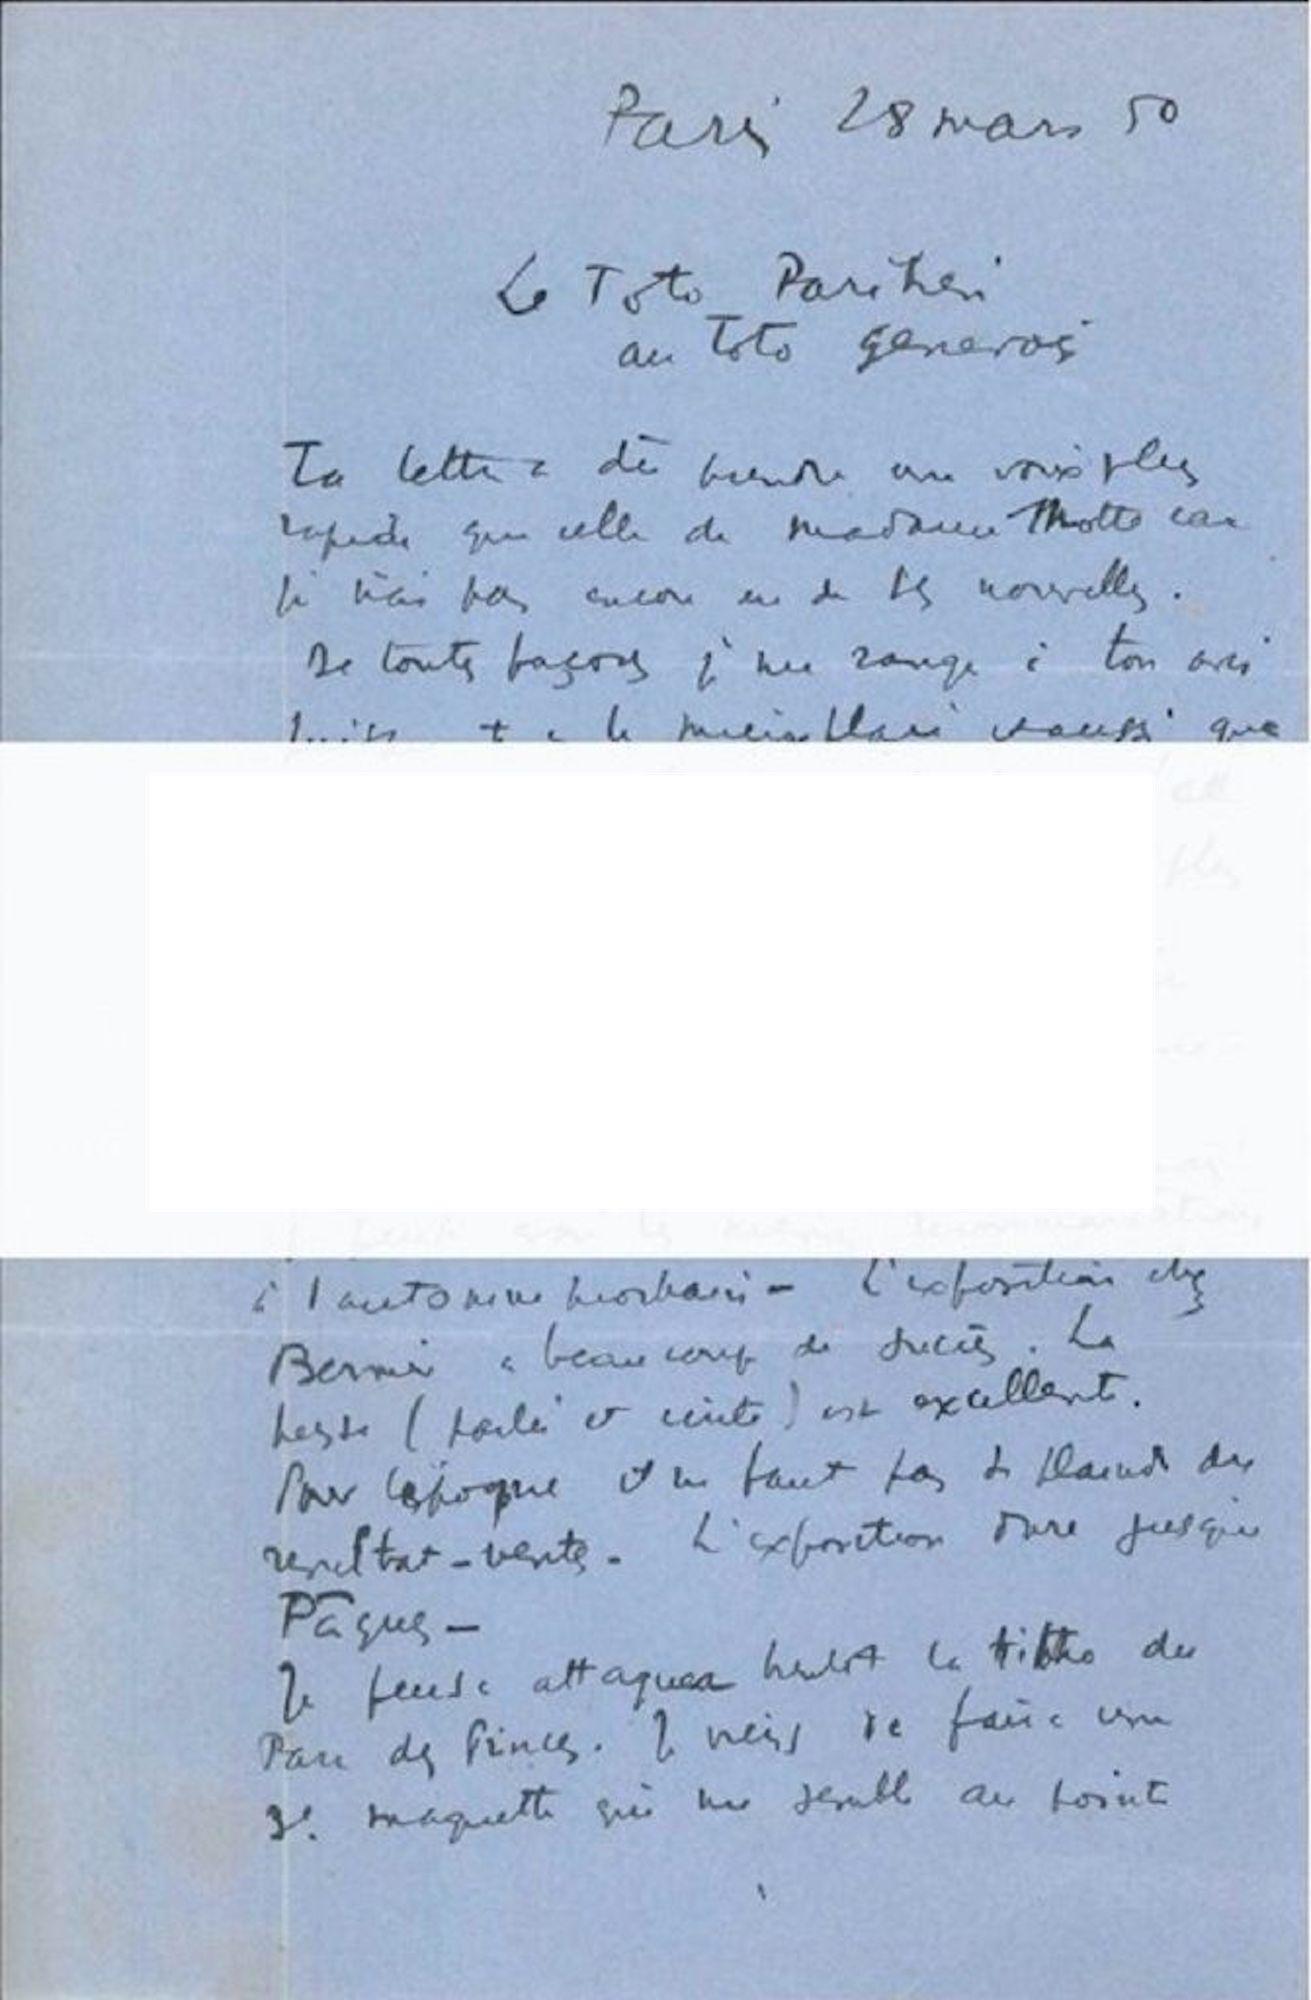 Paris 28 mars 50
Le Toto Parisien
au Toto genevois
Ta lettre a dû prendre une voix plus
rapide que celle de madame Motte car
je n'ai pas encore eu de ses nouvelles.
De toutes façons je me range à ton avis
que
à l'automne prochain - L'exposition chez
Bernier a beaucoup de succès. La
presse (parlée et écrite) est excellente.
Pour l'époque il ne faut pas se plaindre du
resultat-vente. L'exposition dure jusqu'à
Pâques -
Je pense attaquer bientôt la litho du
Parc des Princes. Je viens de faire une
3e. maquette qui me semble au point